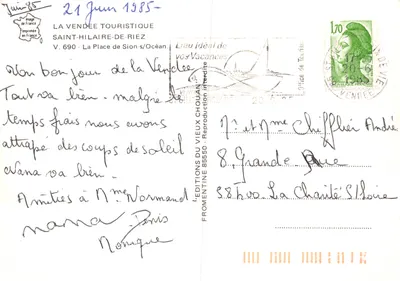 Juin 85
21 Juin 1985-
LA VENDÉE TOURISTIQUE
SAINT-HILAIRE-DE RIEZ
V. 690 - La Place de Sion s/Océan.
Un bon jour de la Vendée
Tout va bien - malgré le
temps frais nous avons
attrapé des coups de soleil
Nana va bien.
Amitiés à Mme Normand
nana Denis
Monique
L'EDITIONS DU VIEUX CHOUAN
FROMENTINE 85550 - Reproduction interdite
Lieu idéal de
vos Vacances
1,70
Mr et Mme Chifflier André
8, Grande Rue
58400 - La Charité S/Loire